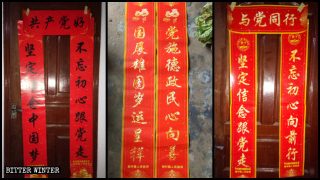 共产党好
不忘初心跟党走
坚定信念中国梦
党施德政民心向善
国展雄图岁送呈祥
与党同行
不忘初心向前行
坚定信念跟党走
BITTER WINTER